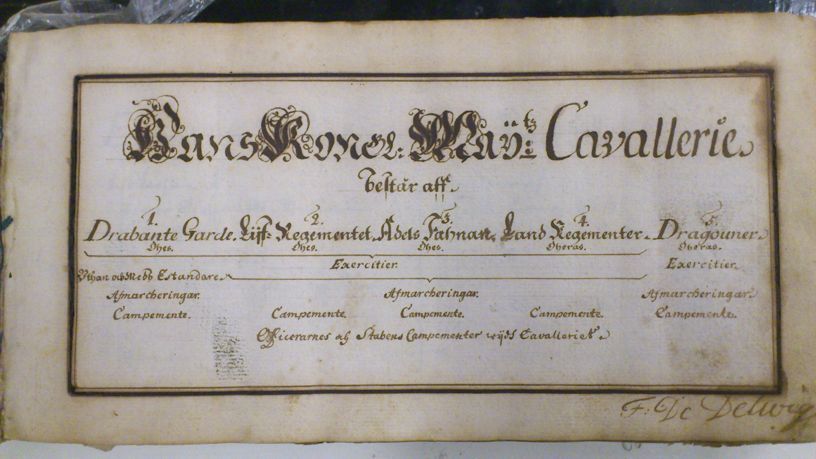 Hans Kongl: Maÿ:tz Cavallerie
består aff.
1. 2. 3. 4. 5.
Drabante Garde. Lijff Regementet. Adels Fahnan. Land Regementer. Dragouner.
Dhes. Dhes. Dhes. Dheras. Dheras.
Exercitier. Exercitier.
Uthan och Medh Estandare.
Afmarcheringar. Afmarcheringar. Afmarcheringar.
Campemente. Campemente. Campemente. Campemente. Campemente.
Officerarnes och Stabens Campementer wijdh Cavalleriet.
F: De Delwig